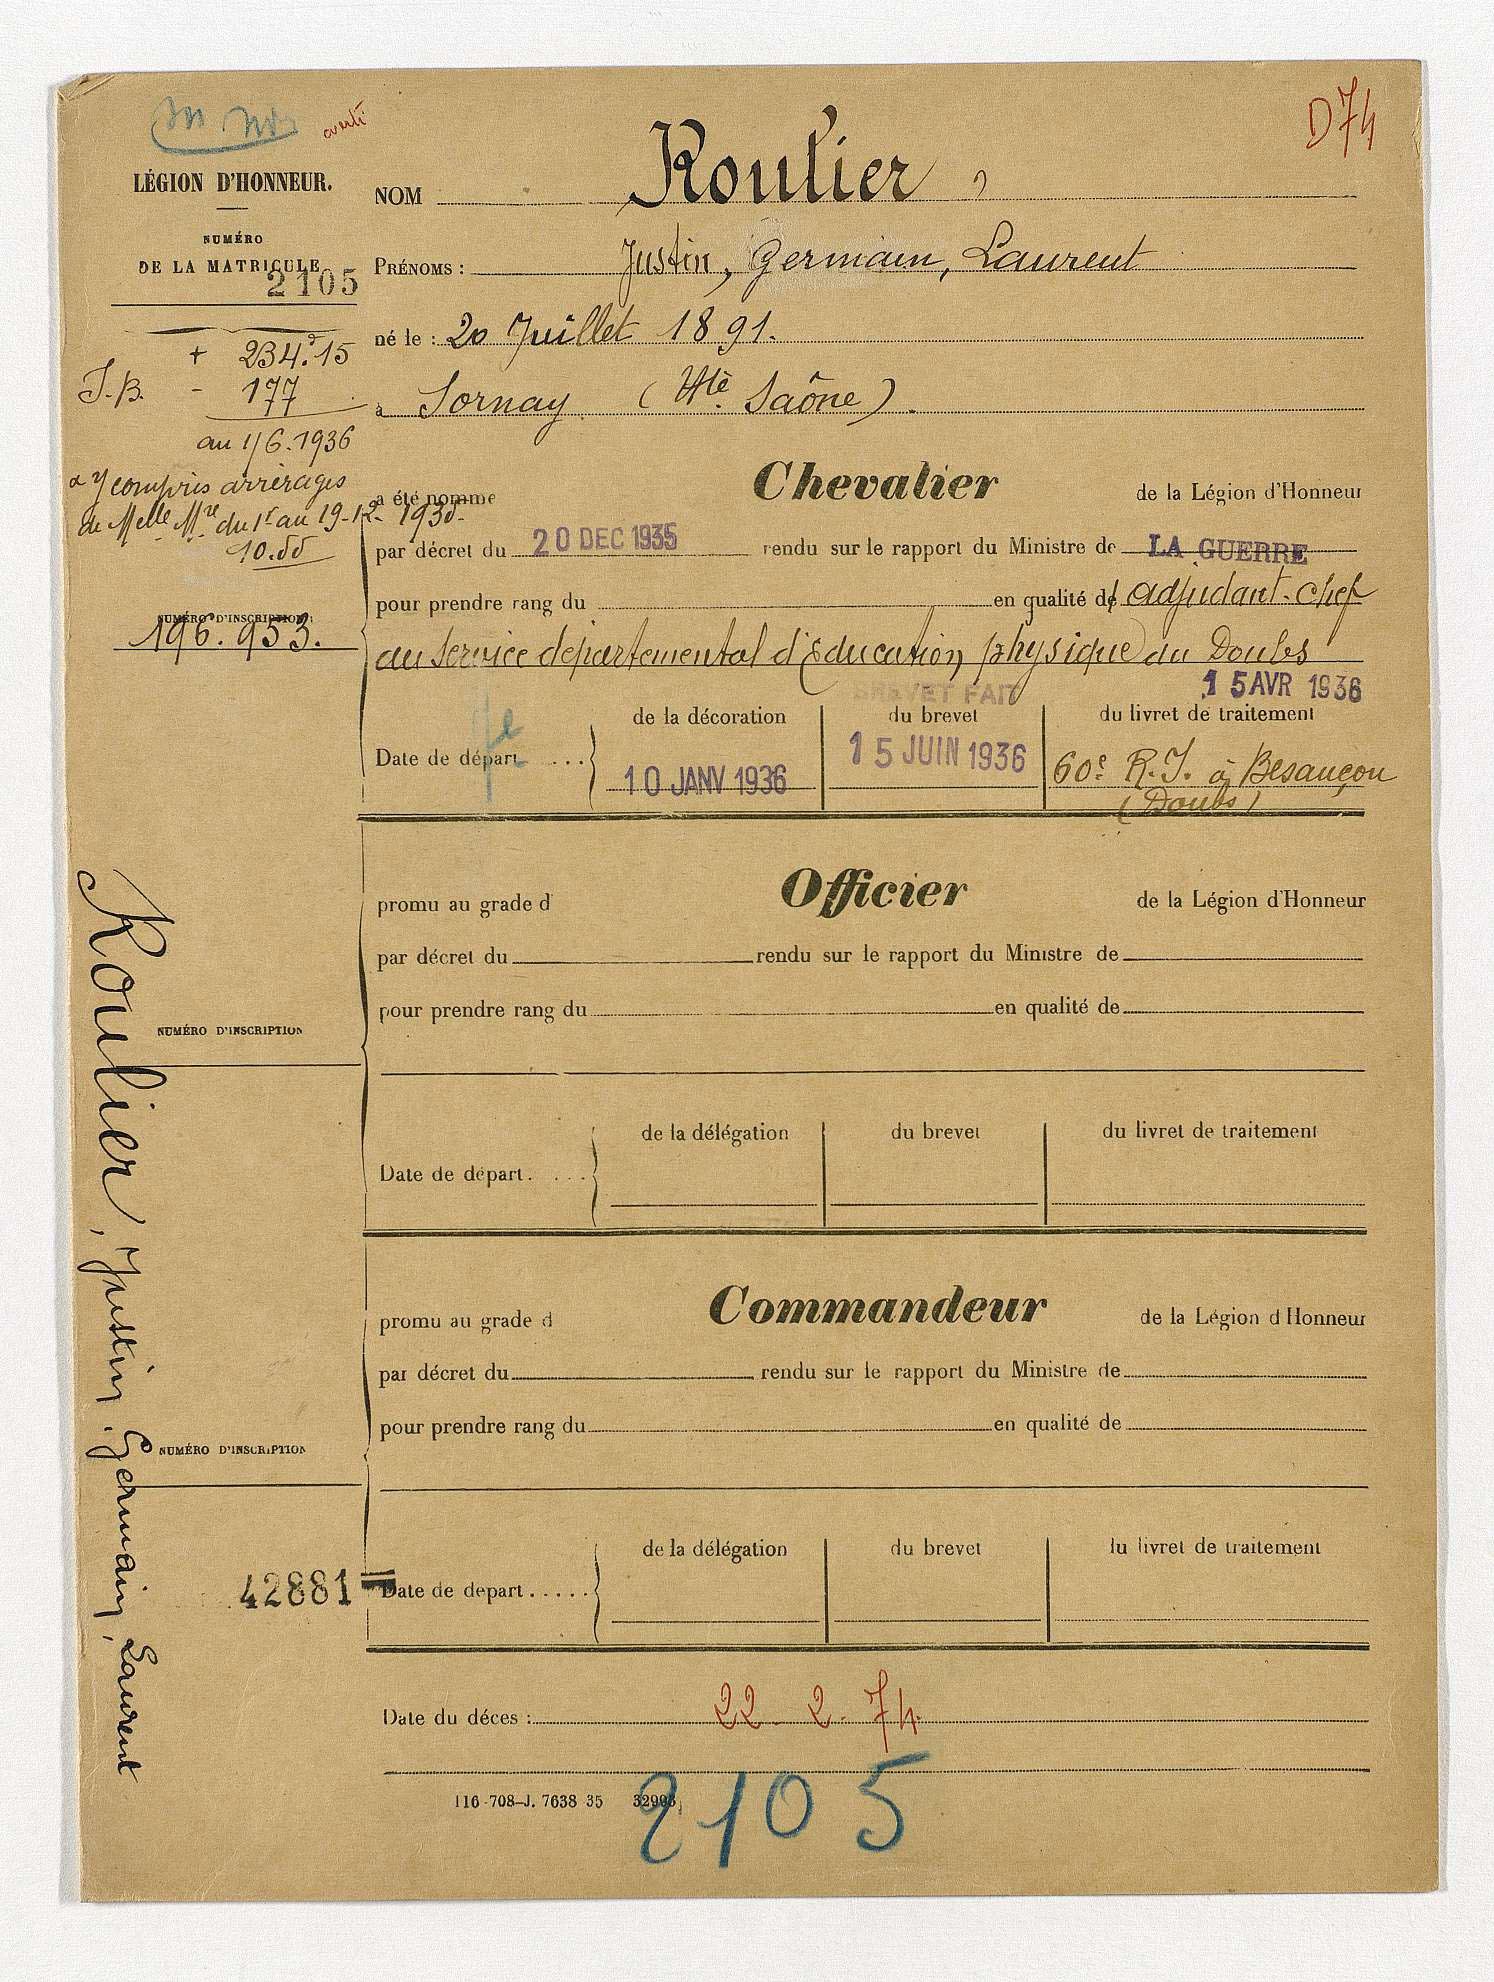 D74
averti
LÉGION D'HONNEUR.
NUMÉRO
DE LA MATRICULE
2105
NOM Roulier
PRÉNOMS : Justin, Germain, Laurent
né le : 20 Juillet 1891.
à Sornay (Hte Saône).
+ 234.15
J.B. - 177
au 1/6.1936
y compris arrérages
de Melle Mre du 1r au 19-12-1935-
10.55
a été nommé Chevalier de la Légion d'Honneur
par décret du 20 DEC 1935 rendu sur le rapport du Ministre de LA GUERRE
pour prendre rang du en qualité d' adjudant-chef
NUMÉRO D'INSCRIPTION :
196.953.
au service départemental d'Education physique du Doubs
BREVET FAIT
15 AVR 1936
de la décoration du brevet du livret de traitement
Date de départ ... 10 JANV 1936 15 JUIN 1936 60e R.I. à Besançon
(Doubs)
promu au grade d Officier de la Légion d'Honneur
par décret du rendu sur le rapport du Ministre de
pour prendre rang du en qualité de
NUMÉRO D'INSCRIPTION
de la délégation du brevet du livret de traitement
Date de départ. ...
promu au grade d Commandeur de la Légion d'Honneur
par décret du rendu sur le rapport du Ministre de
pour prendre rang du en qualité de
NUMÉRO D'INSCRIPTION
de la délégation du brevet du livret de traitement
42881 Date de départ .....
Roulier, Justin, Germain, Laurent
Date du décès : 22-2-74.
116-708-J. 7638 35
2105